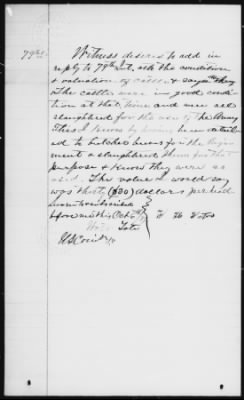 79th
Witness desires to add in
reply to 79th Int. as to the condition
& valuation of cattle & says they
The cattle were in good condi
tion at that time and were all
slaughtered for the use of the Army
This I know by having been detail
ed to butcher beeves for the Regi
ment & slaughtered them for that
purpose & know they were so
used. The value I would say
was thirty ($30) dollars per head
Sworn to & subscribed
before me this Oct